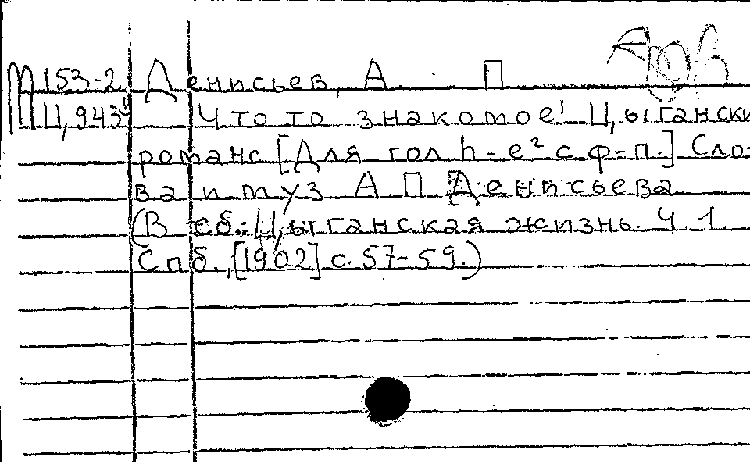 М 153-2 Денисьев, А. П
Ц, 943 Что то знакомое! Цыгански
романс [Для гол h-e² с ф-п.] Сло-
ва и муз А П Денисьева
(В сб.: Цыганская жизнь. Ч 1.
Спб., [1902] с. 57-59.)